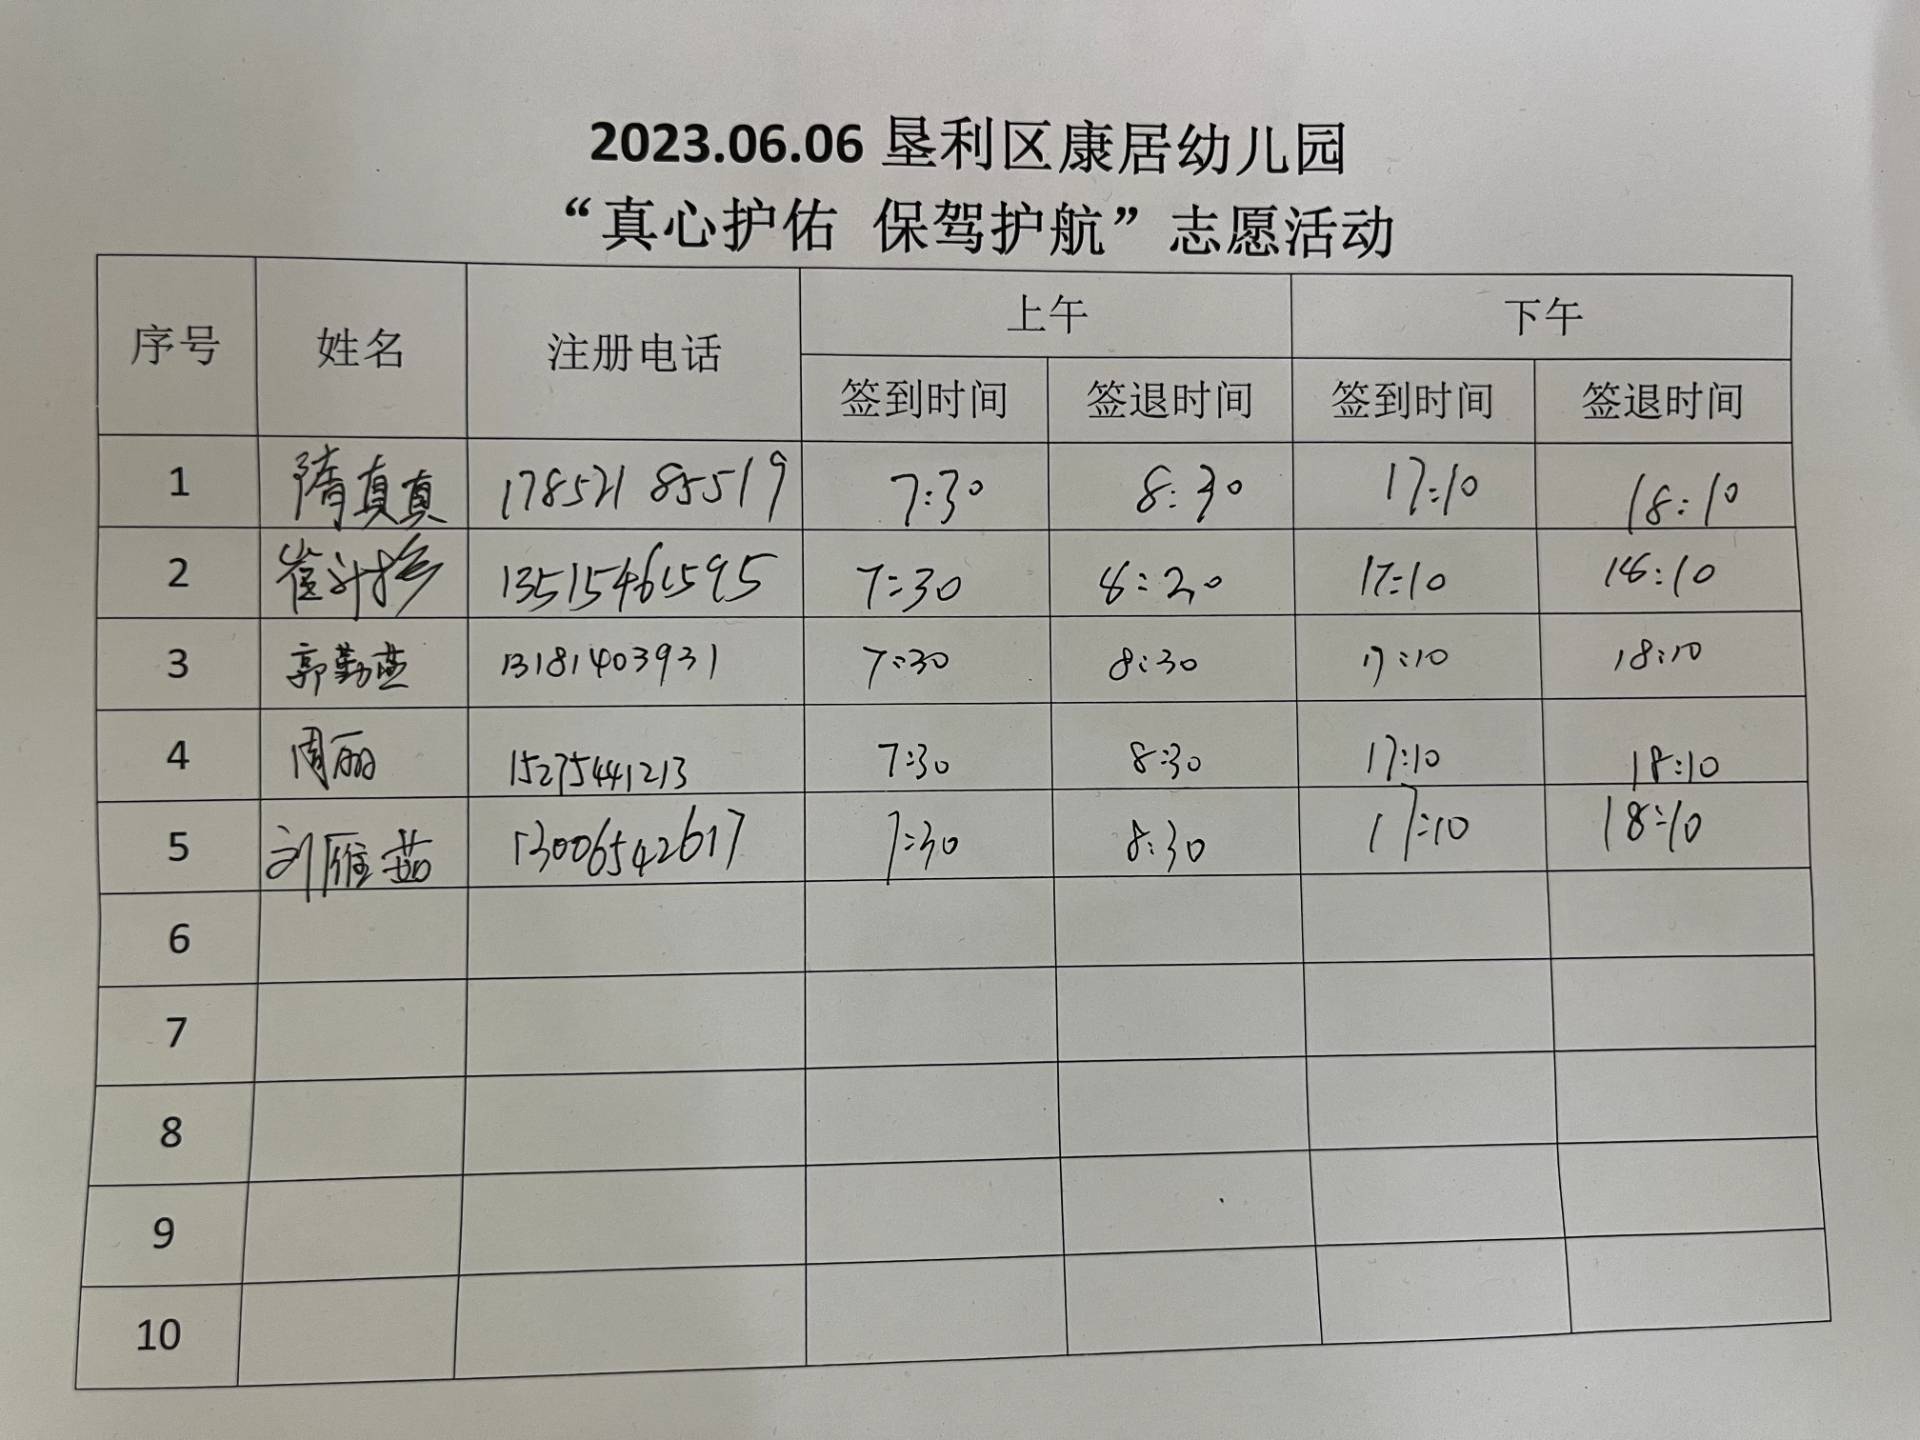 2023.06.06 垦利区康居幼儿园
“真心护佑 保驾护航”志愿活动
序号 姓名 注册电话 上午 下午
签到时间 签退时间 签到时间 签退时间
1 隋真真 17852185519 7:30 8:30 17:10 18:10
2 崔 13515461595 7:30 8:20 17:10 18:10
3 郭勤燕 13181403931 7:30 8:30 17:10 18:10
4 周丽 15275441213 7:30 8:30 17:10 18:10
5 刘雁茹 13006542617 7:30 8:30 17:10 18:10
6
7
8
9
10